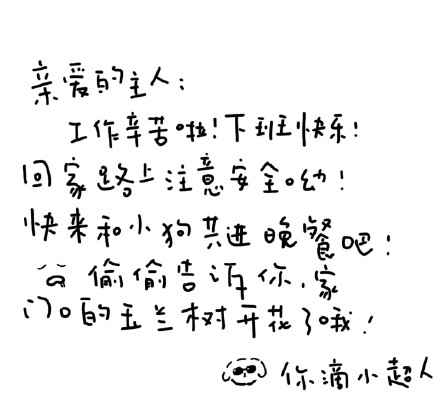 亲爱的主人：
工作辛苦啦！下班快乐！
回家路上注意安全呦！
快来和小狗共进晚餐吧！
偷偷告诉你，家
门口的玉兰树开花了哦！
你滴小超人